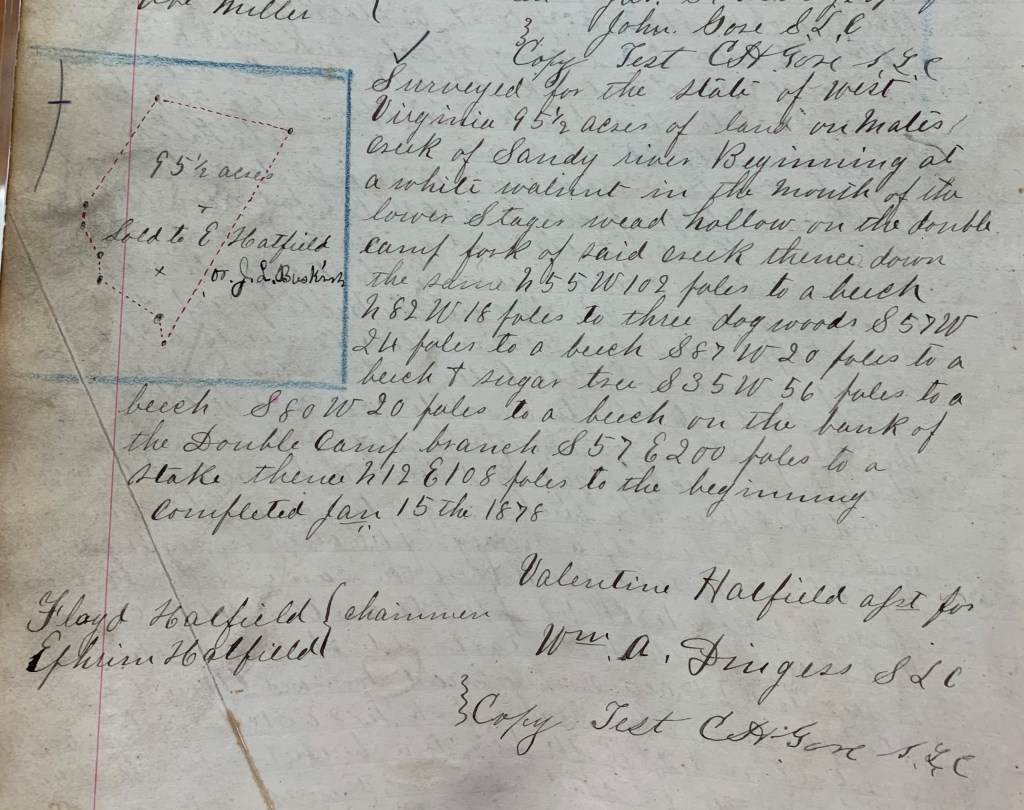 Miller
John. Gose S.L.C
Copy Test C H Gose S.L.C
95 1/2 acres
Sold to E Hatfield
or J. L. Buskirk
Surveyed for the state of West
Virginia 95 1/2 acres of land on Mates
creek of Sandy river Beginning at
a white walnut in the mouth of the
lower Stages wead hollow on the double
camp fork of said creek thence down
the same N55W102 poles to a beech
N82W18 poles to three dogwoods S57W
24 poles to a beech S87W20 poles to a
beech + sugar tree S35W56 poles to a
beech S80W20 poles to a beech on the bank of
the Double Camp branch S57E200 poles to a
stake thence N12E108 poles to the beginning
completed Jan 15 the 1878
Valentine Hatfield
Wm. A. Dingess S L C
Floyd Hatfield } chainmen
Ephrim Hatfield
Copy Test C H Gose S.L.C